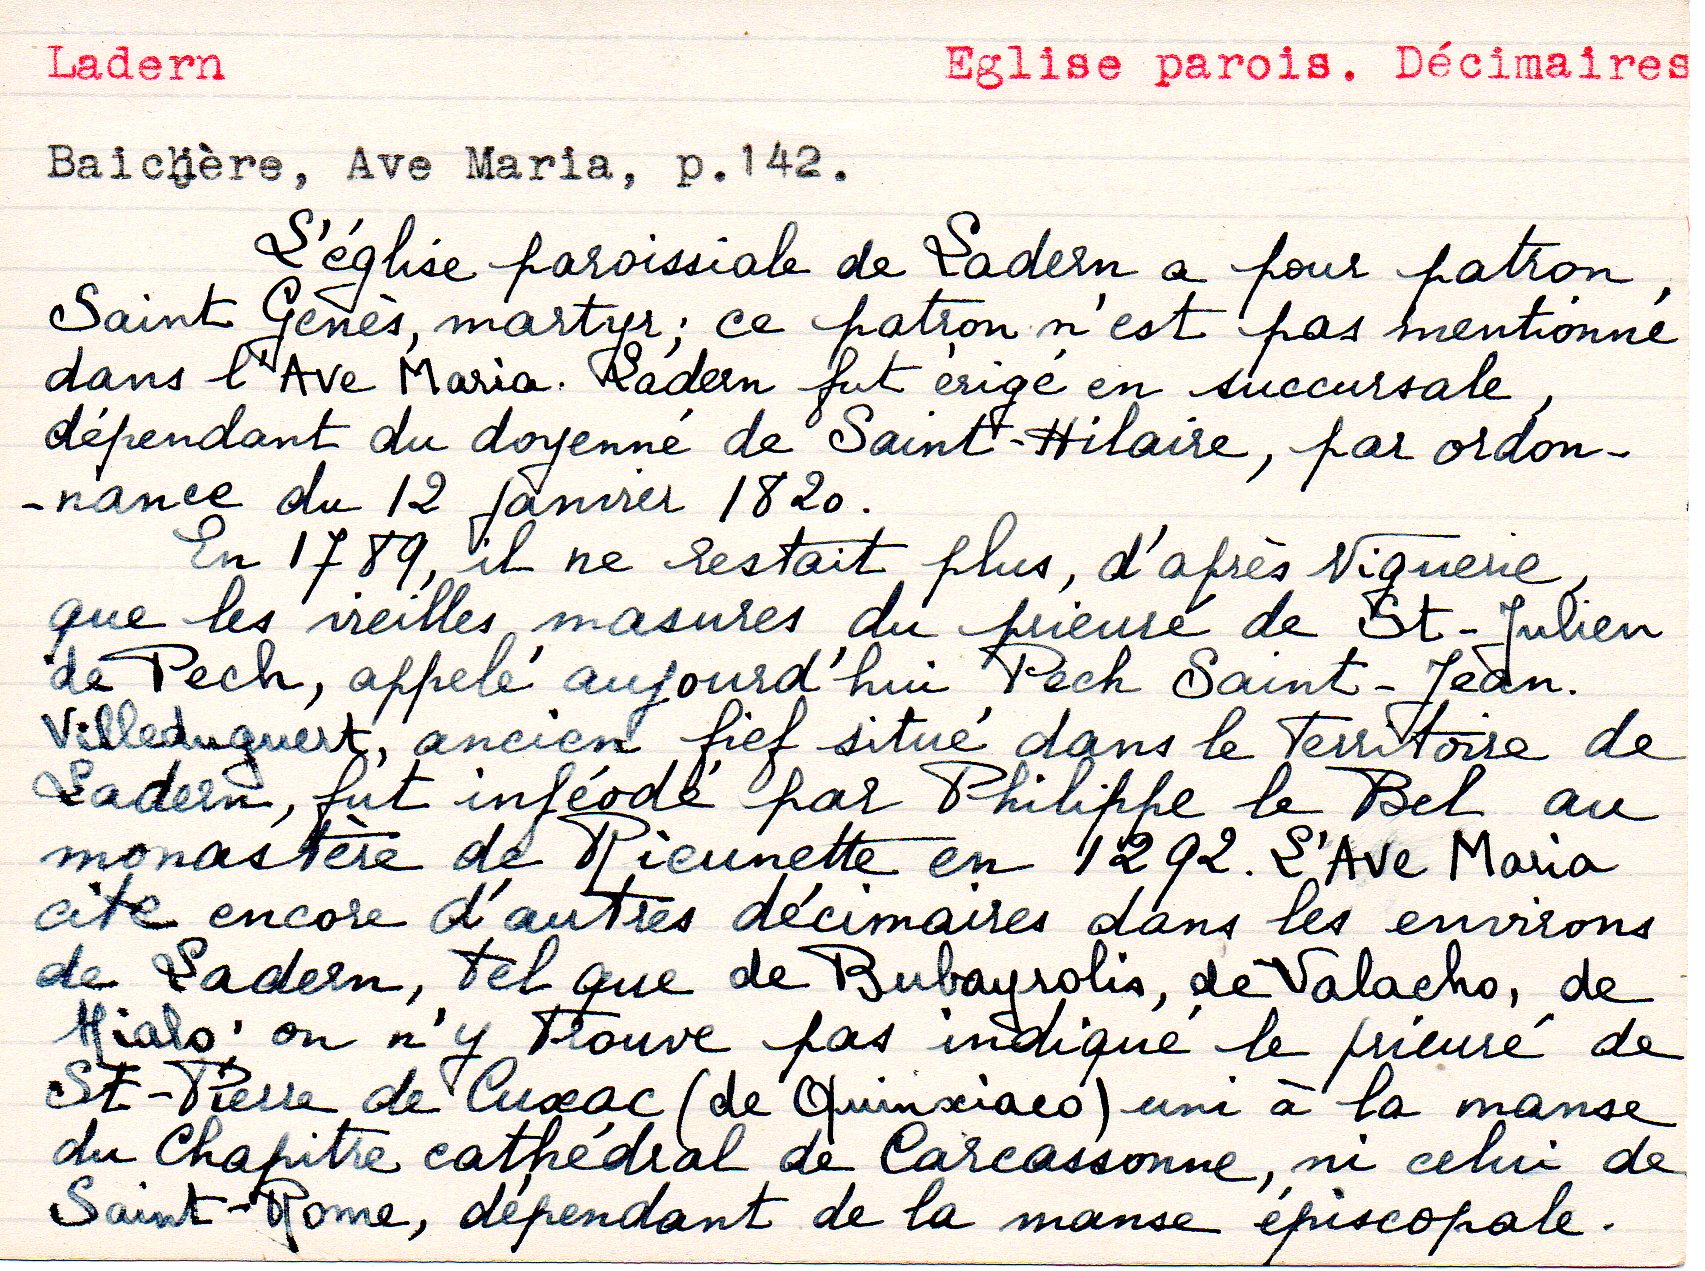 Ladern Eglise parois. Décimaires
Baichère, Ave Maria, p.142.
L'église paroissiale de Ladern a pour patron,
Saint Genès, martyr; ce patron n'est pas mentionné
dans l'Ave Maria. Ladern fut érigé en succursale,
dépendant du doyenné de Saint-Hilaire, par ordon-
-nance du 12 janvier 1820.
En 1789, il ne restait plus, d'après Viguerie,
que les vieilles masures du prieuré de St-Julien
de Pech, appelé aujourd'hui Pech Saint-Jean.
Villeduguert, ancien fief situé dans le territoire de
Ladern, fut inféodé par Philippe le Bel au
monastère de Rieunette en 1292. L'Ave Maria
cite encore d'autres décimaires dans les environs
de Ladern, tel que de Bubayrolis, de Valacho, de
Mialo; on n'y trouve pas indiqué le prieuré de
St-Pierre de Cuxac (de Quinxiaco) uni à la manse
du Chapitre cathédral de Carcassonne, ni celui de
Saint-Rome, dépendant de la manse épiscopale.